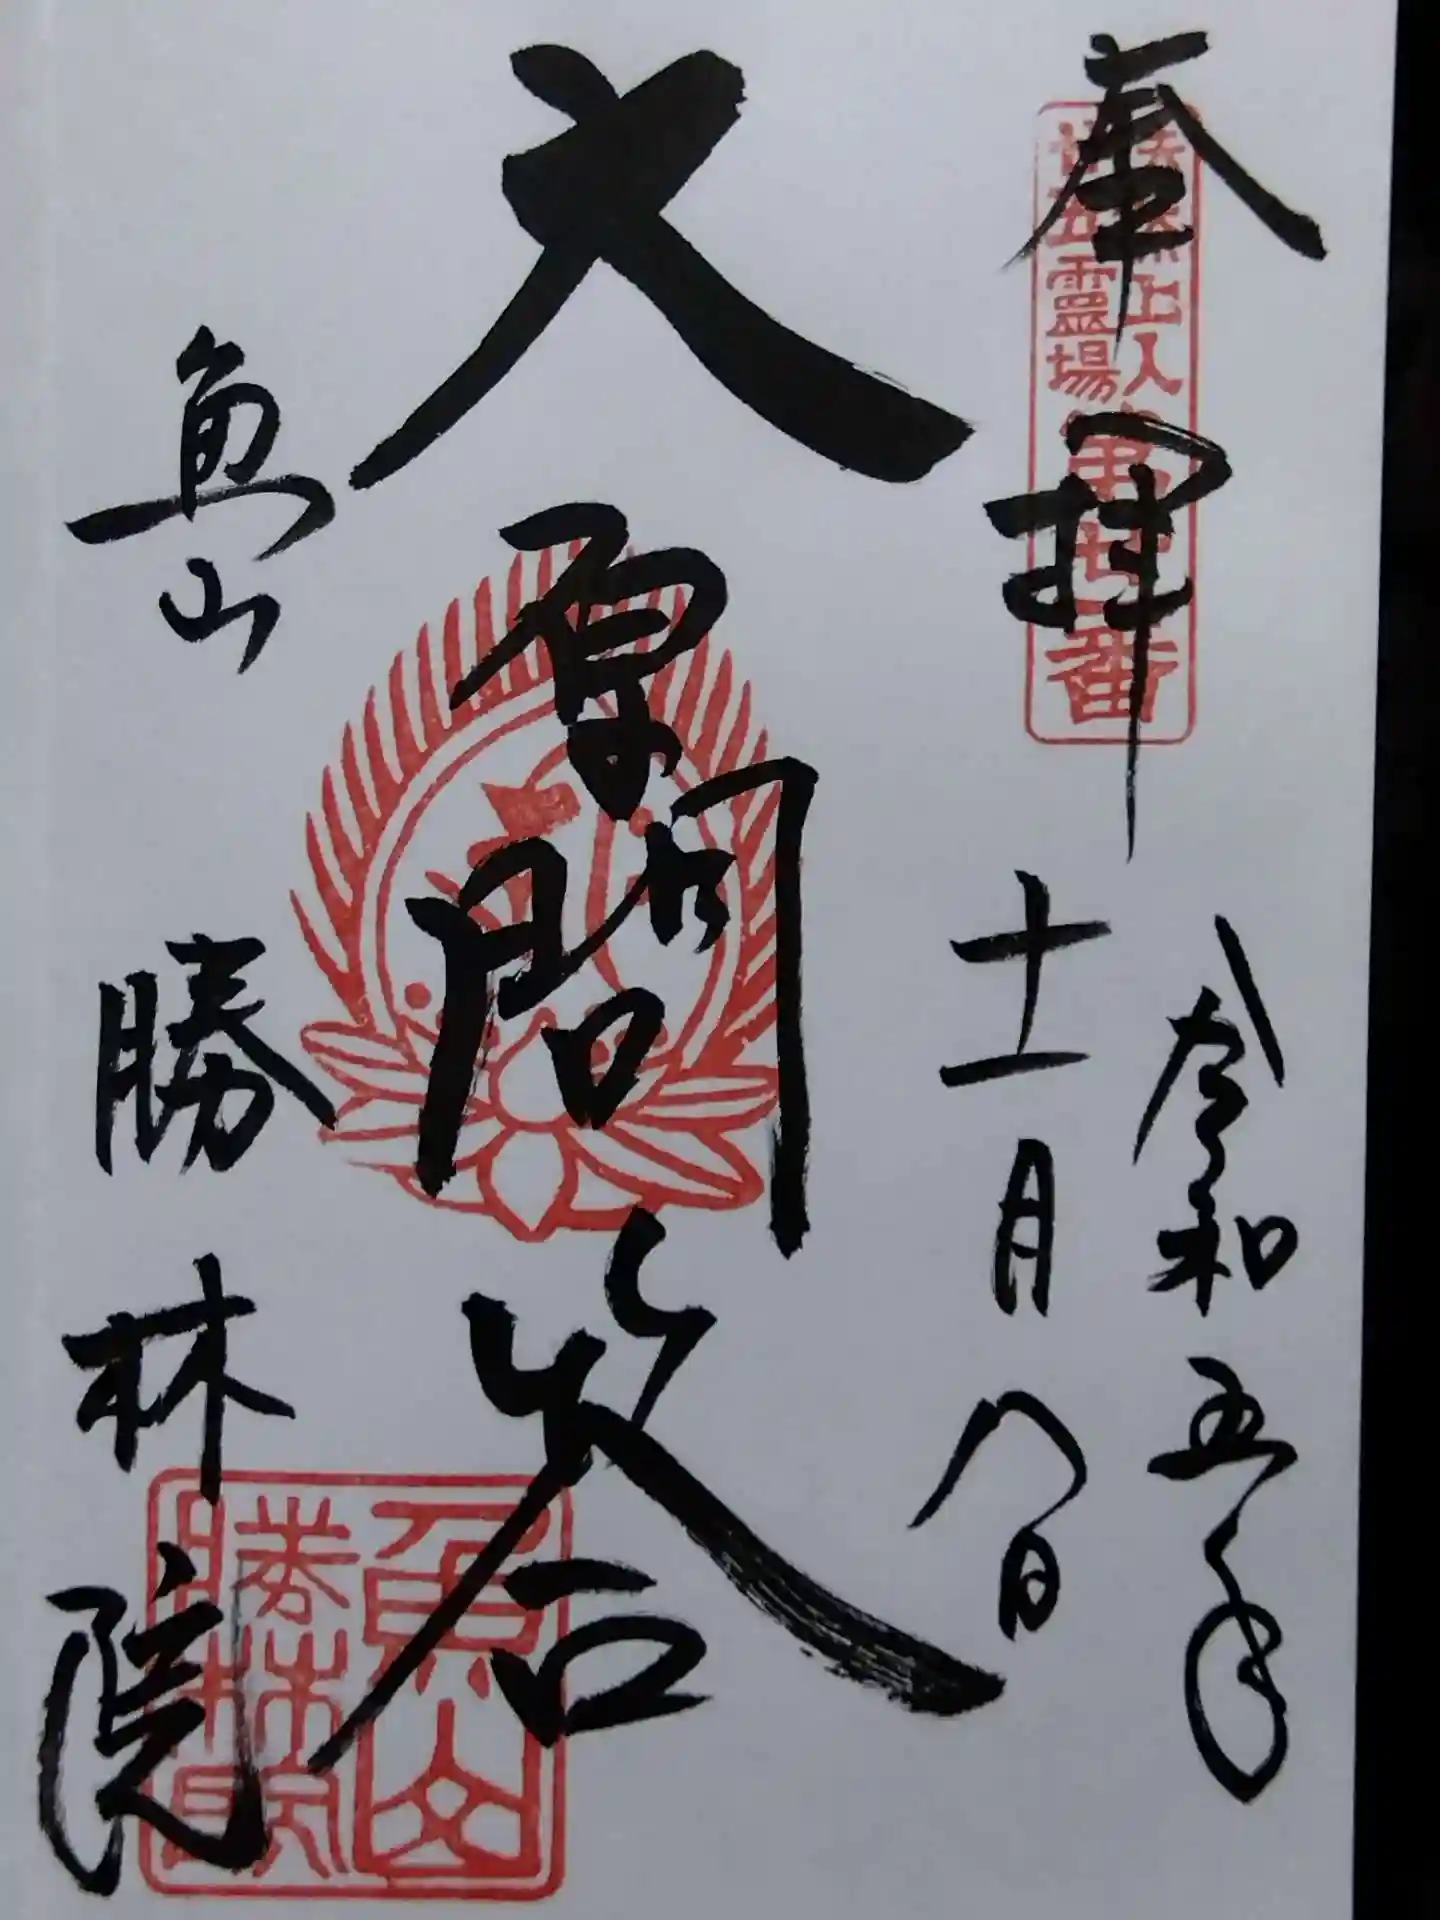 奉拝
法然上人
廿五霊場
第廿一番
令和五年
十一月八日
大原問答
魚山
勝林院
魚山
勝林院